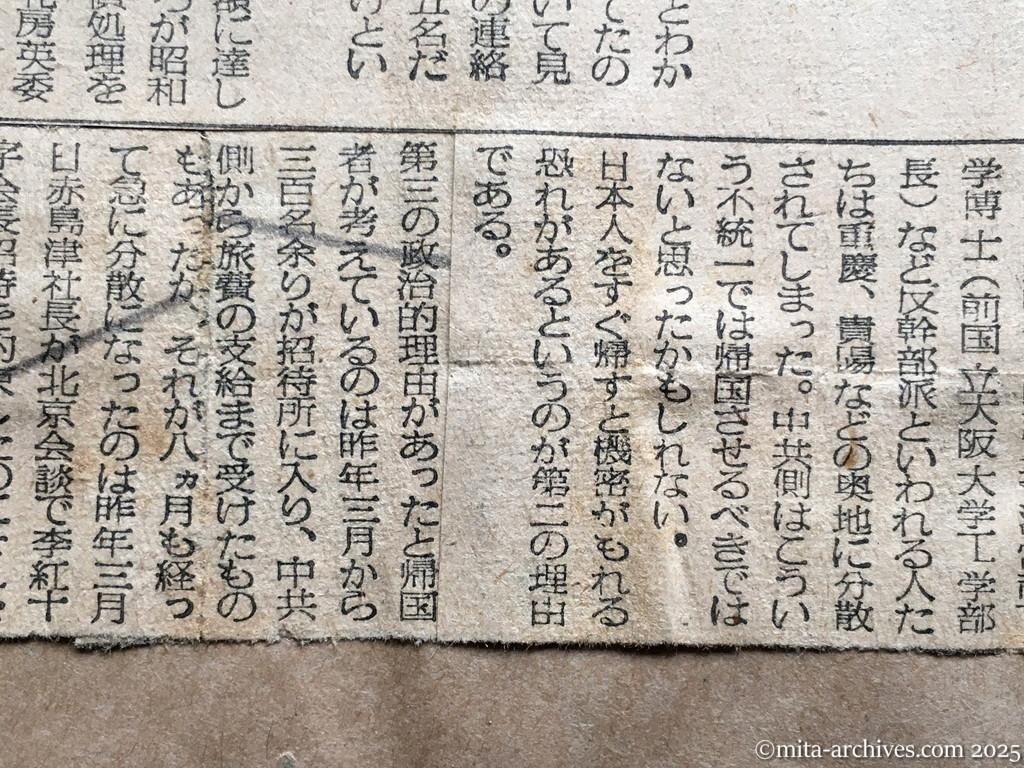 とわか
てたの
いて見
の連絡
五名だ
けとい
額に達し
ろが昭和
処理を
花房英委
学博士（前国立大阪大学工学部
長）など反幹部派といわれる人た
ちは重慶、貴陽などの奥地に分散
されてしまった。中共側はこうい
う不統一では帰国させるべきでは
ないと思ったかもしれない。
日本人をすぐ帰すと機密がもれる
恐れがあるというのが第二の理由
である。
第三の政治的理由があったと帰国
者が考えているのは昨年三月から
三百名余りが招待所に入り、中共
側から旅費の支給まで受けたもの
もあったが、それが八ヵ月も経っ
て急に分散になったのは昨年三月
日赤島津社長が北京会談で李紅十
字会長招待を約束したのに
©mita-archives.com 2025